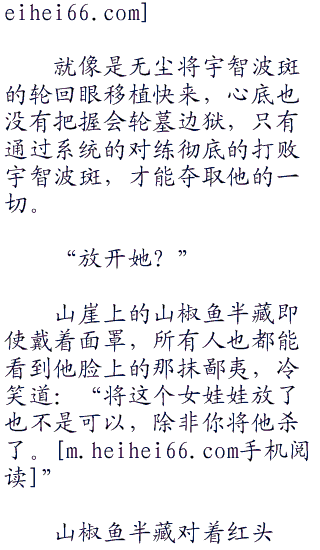 eihei66.com]
就像是无尘将宇智波斑
的轮回眼移植快来，心底也
没有把握会轮墓边狱，只有
通过系统的对练彻底的打败
宇智波斑，才能夺取他的一
切。
“放开她？”
山崖上的山椒鱼半藏即
使戴着面罩，所有人也都能
看到他脸上的那抹鄙夷，冷
笑道：“将这个女娃娃放了
也不是可以，除非你将他杀
了。[m.heihei66.com手机阅
读]”
山椒鱼半藏对着红头